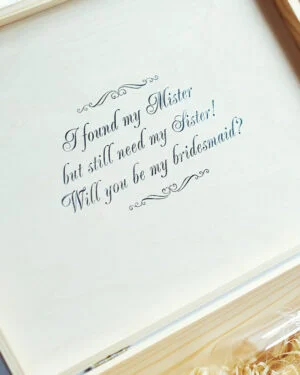 I found my Mister
but still need my Sister!
Will you be my bridesmaid?